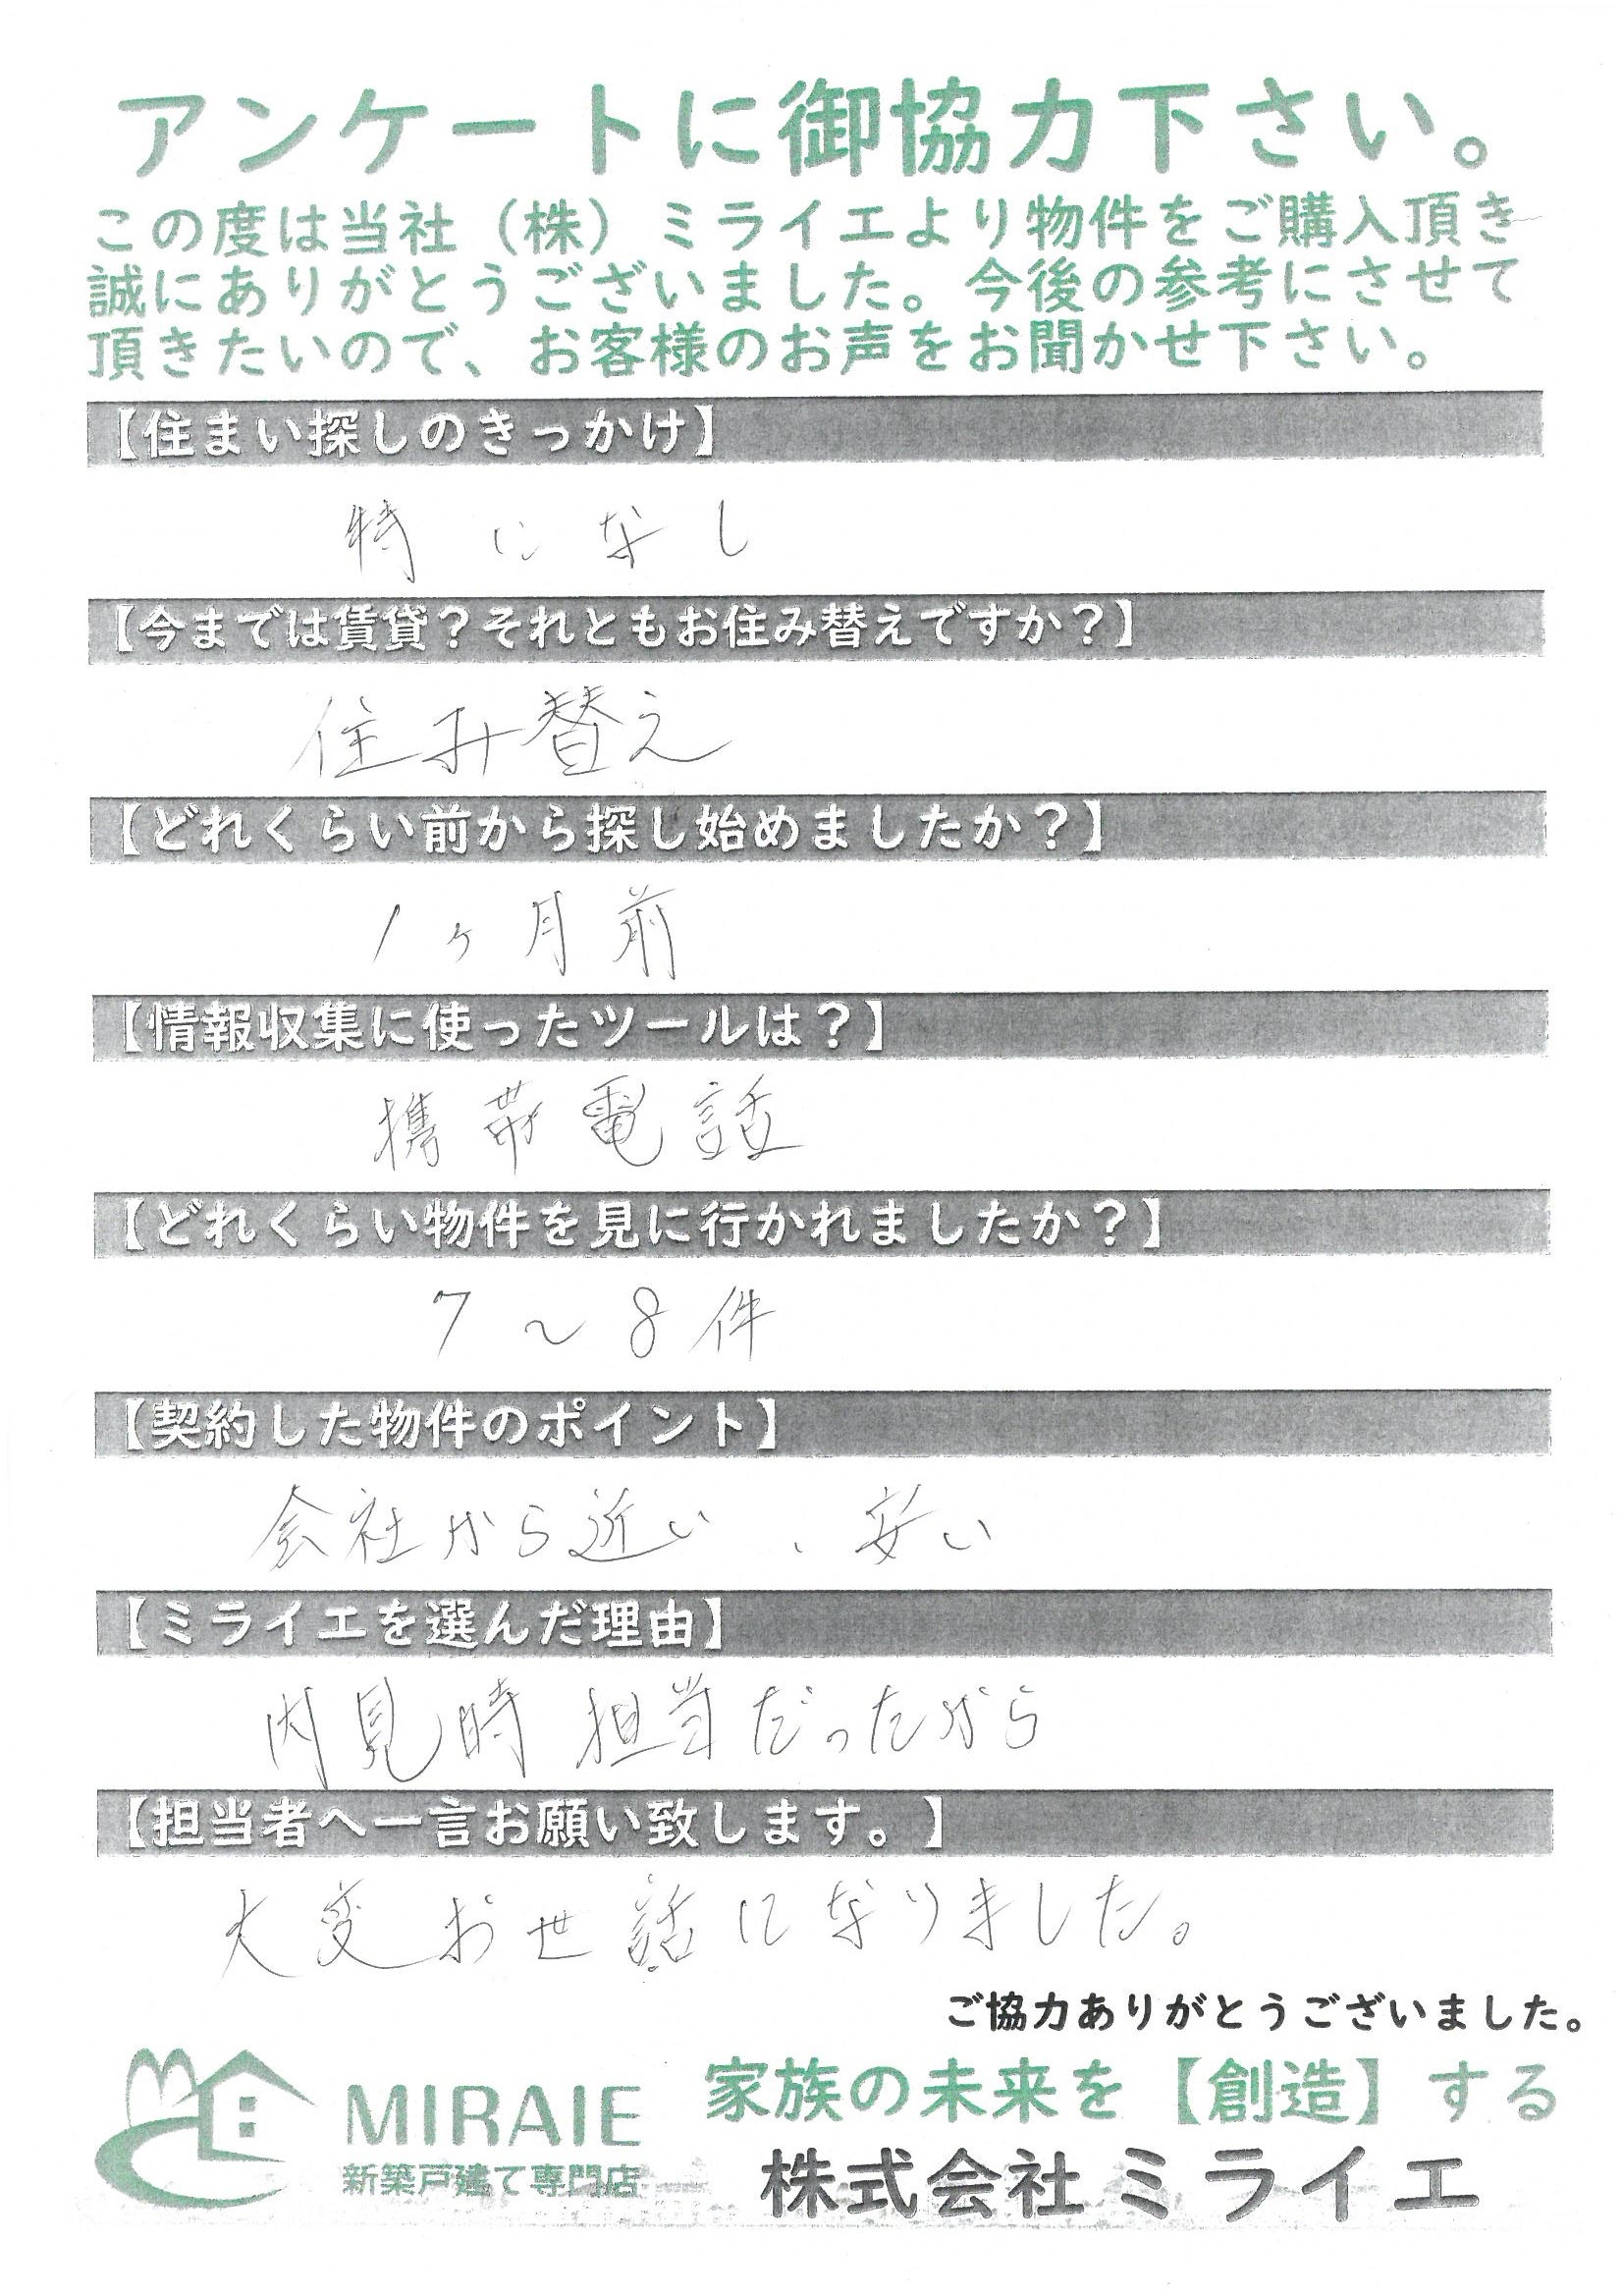 アンケートに御協力下さい。
この度は当社（株）ミライエより物件をご購入頂き
誠にありがとうございました。今後の参考にさせて
頂きたいので、お客様のお声をお聞かせ下さい。
【住まい探しのきっかけ】
特になし
【今までは賃貸？それともお住み替えですか？】
住み替え
【どれくらい前から探し始めましたか？】
1ヶ月前
【情報収集に使ったツールは？】
携帯電話
【どれくらい物件を見に行かれましたか？】
7～8件
【契約した物件のポイント】
会社から近い、安い
【ミライエを選んだ理由】
内見時担当だったから
【担当者へ一言お願い致します。】
大変お世話になりました。
ご協力ありがとうございました。
MIRAIE
新築戸建て専門店
家族の未来を【創造】する
株式会社ミライエ